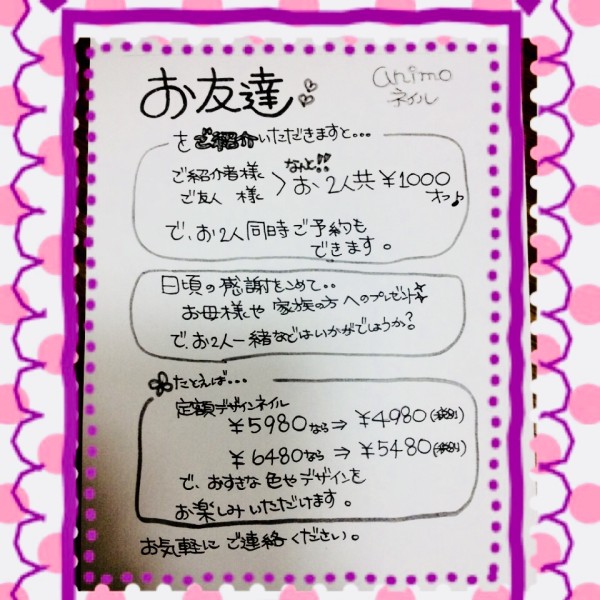 お友達
animo
ネイル
をご紹介いただきますと…
ご紹介者様
ご友人 様
なんと!!
お2人共¥1000
オフ♪
で、お2人同時ご予約も
できます。
日頃の感謝をこめて..
お母様や家族の方へのプレゼント
で、お2人一緒などはいかがでしょうか?
たとえば...
定額デザインネイル
¥5980なら⇒¥4980
¥6480なら⇒¥5480
で、おすきな色やデザインを
お楽しみいただけます。
お気軽にご連絡ください。